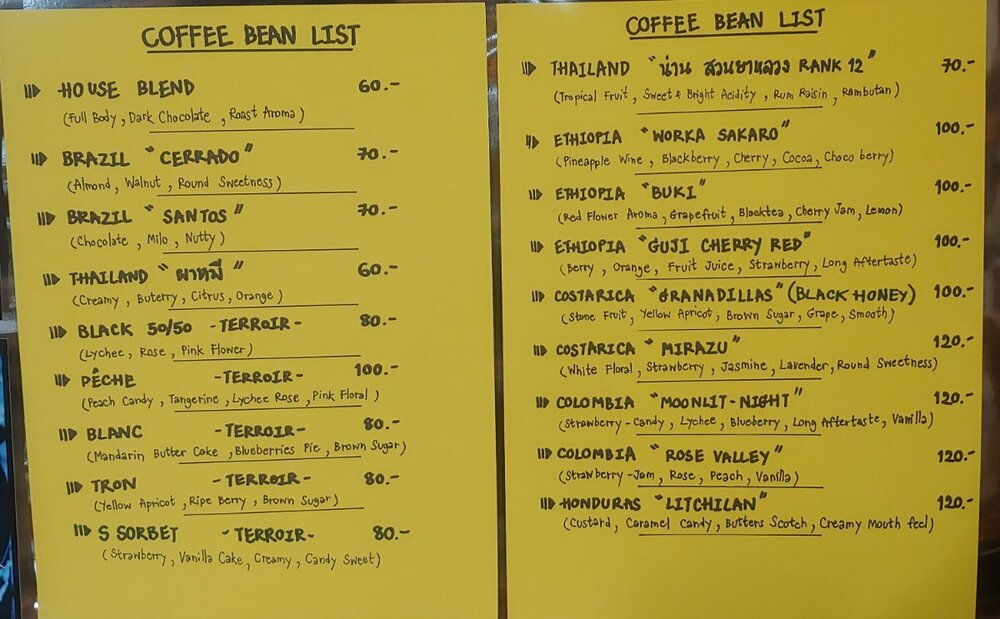 COFFEE BEAN LIST
HOUSE BLEND 60.-
(Full Body, Dark Chocolate, Roast Aroma)
BRAZIL "CERRADO" 70.-
(Almond, Walnut, Round Sweetness)
BRAZIL "SANTOS" 70.-
(Chocolate, Milo, Nutty)
THAILAND "ผาหมี" 60.-
(Creamy, Buterry, Citrus, Orange)
BLACK 50/50 -TERROIR- 80.-
(Lychee, Rose, Pink Flower)
PÊCHE -TERROIR- 100.-
(Peach Candy, Tangerine, Lychee Rose, Pink Floral)
BLANC -TERROIR- 80.-
(Mandarin Butter Cake, Blueberries Pie, Brown Sugar)
TRON -TERROIR- 80.-
(Yellow Apricot, Ripe Berry, Brown Sugar)
S SORBET -TERROIR- 80.-
(Strawberry, Vanilla Cake, Creamy, Candy Sweet)
COFFEE BEAN LIST
THAILAND "น่าน สวนยาแลวง RANK 12" 70.-
(Tropical Fruit, Sweet & Bright Acidity, Rum Raisin, Rambutan)
ETHIOPIA "WORKA SAKARO" 100.-
(Pineapple Wine, Blackberry, Cherry, Cocoa, Choco berry)
ETHIOPIA "BUKI" 100.-
(Red Flower Aroma, Grapefruit, Blacktea, Cherry Jam, Lemon)
ETHIOPIA "GUJI CHERRY RED" 100.-
(Berry, Orange, Fruit Juice, Strawberry, Long Aftertaste)
COSTARICA "GRANADILLAS" (BLACK HONEY) 100.-
(Stone Fruit, Yellow Apricot, Brown Sugar, Grape, Smooth)
COSTARICA "MIRAZU" 120.-
(White Floral, Strawberry, Jasmine, Lavender, Round Sweetness)
COLOMBIA "MOONLIT-NIGHT" 120.-
(Strawberry-Candy, Lychee, Blueberry, Long Aftertaste, Vanilla)
COLOMBIA "ROSE VALLEY" 120.-
(Strawberry-Jam, Rose, Peach, Vanilla)
HONDURAS "LITCHILAN" 120.-
(Custard, Caramel Candy, Butters Scotch, Creamy Mouth feel)